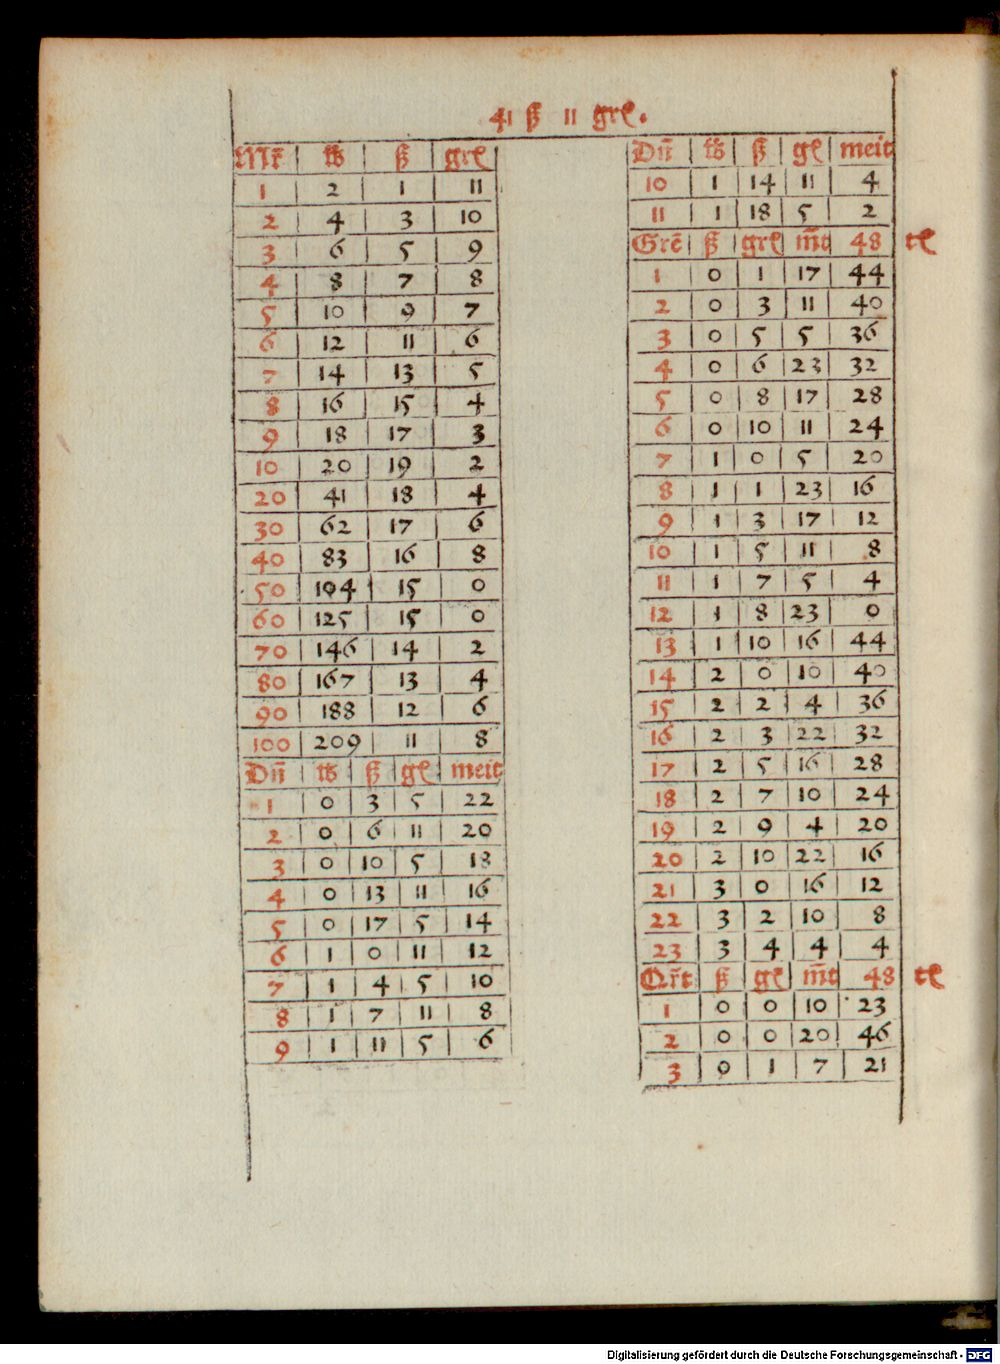 41 ß 11 grſ.
Mr̄ | ℔ | ß | grſ
1 | 2 | 1 | 11
2 | 4 | 3 | 10
3 | 6 | 5 | 9
4 | 8 | 7 | 8
5 | 10 | 9 | 7
6 | 12 | 11 | 6
7 | 14 | 13 | 5
8 | 16 | 15 | 4
9 | 18 | 17 | 3
10 | 20 | 19 | 2
20 | 41 | 18 | 4
30 | 62 | 17 | 6
40 | 83 | 16 | 8
50 | 104 | 15 | 0
60 | 125 | 15 | 0
70 | 146 | 14 | 2
80 | 167 | 13 | 4
90 | 188 | 12 | 6
100 | 209 | 11 | 8
Dn̄ | ℔ | ß | gſ | meit
1 | 0 | 3 | 5 | 22
2 | 0 | 6 | 11 | 20
3 | 0 | 10 | 5 | 18
4 | 0 | 13 | 11 | 16
5 | 0 | 17 | 5 | 14
6 | 1 | 0 | 11 | 12
7 | 1 | 4 | 5 | 10
8 | 1 | 7 | 11 | 8
9 | 1 | 11 | 5 | 6
Dn̄ | ℔ | ß | gſ | meit
10 | 1 | 14 | 11 | 4
11 | 1 | 18 | 5 | 2
Grē | ß | grſ | m̄t | 48 tſ
1 | 0 | 1 | 17 | 44
2 | 0 | 3 | 11 | 40
3 | 0 | 5 | 5 | 36
4 | 0 | 6 | 23 | 32
5 | 0 | 8 | 17 | 28
6 | 0 | 10 | 11 | 24
7 | 1 | 0 | 5 | 20
8 | 1 | 1 | 23 | 16
9 | 1 | 3 | 17 | 12
10 | 1 | 5 | 11 | 8
11 | 1 | 7 | 5 | 4
12 | 1 | 8 | 23 | 0
13 | 1 | 10 | 16 | 44
14 | 2 | 0 | 10 | 40
15 | 2 | 2 | 4 | 36
16 | 2 | 3 | 22 | 32
17 | 2 | 5 | 16 | 28
18 | 2 | 7 | 10 | 24
19 | 2 | 9 | 4 | 20
20 | 2 | 10 | 22 | 16
21 | 3 | 0 | 16 | 12
22 | 3 | 2 | 10 | 8
23 | 3 | 4 | 4 | 4
Qr̄t | ß | gſ | m̄t | 48 tſ
1 | 0 | 0 | 10 | 23
2 | 0 | 0 | 20 | 46
3 | 0 | 1 | 7 | 21
Digitalisierung gefördert durch die Deutsche Forschungsgemeinschaft - DFG